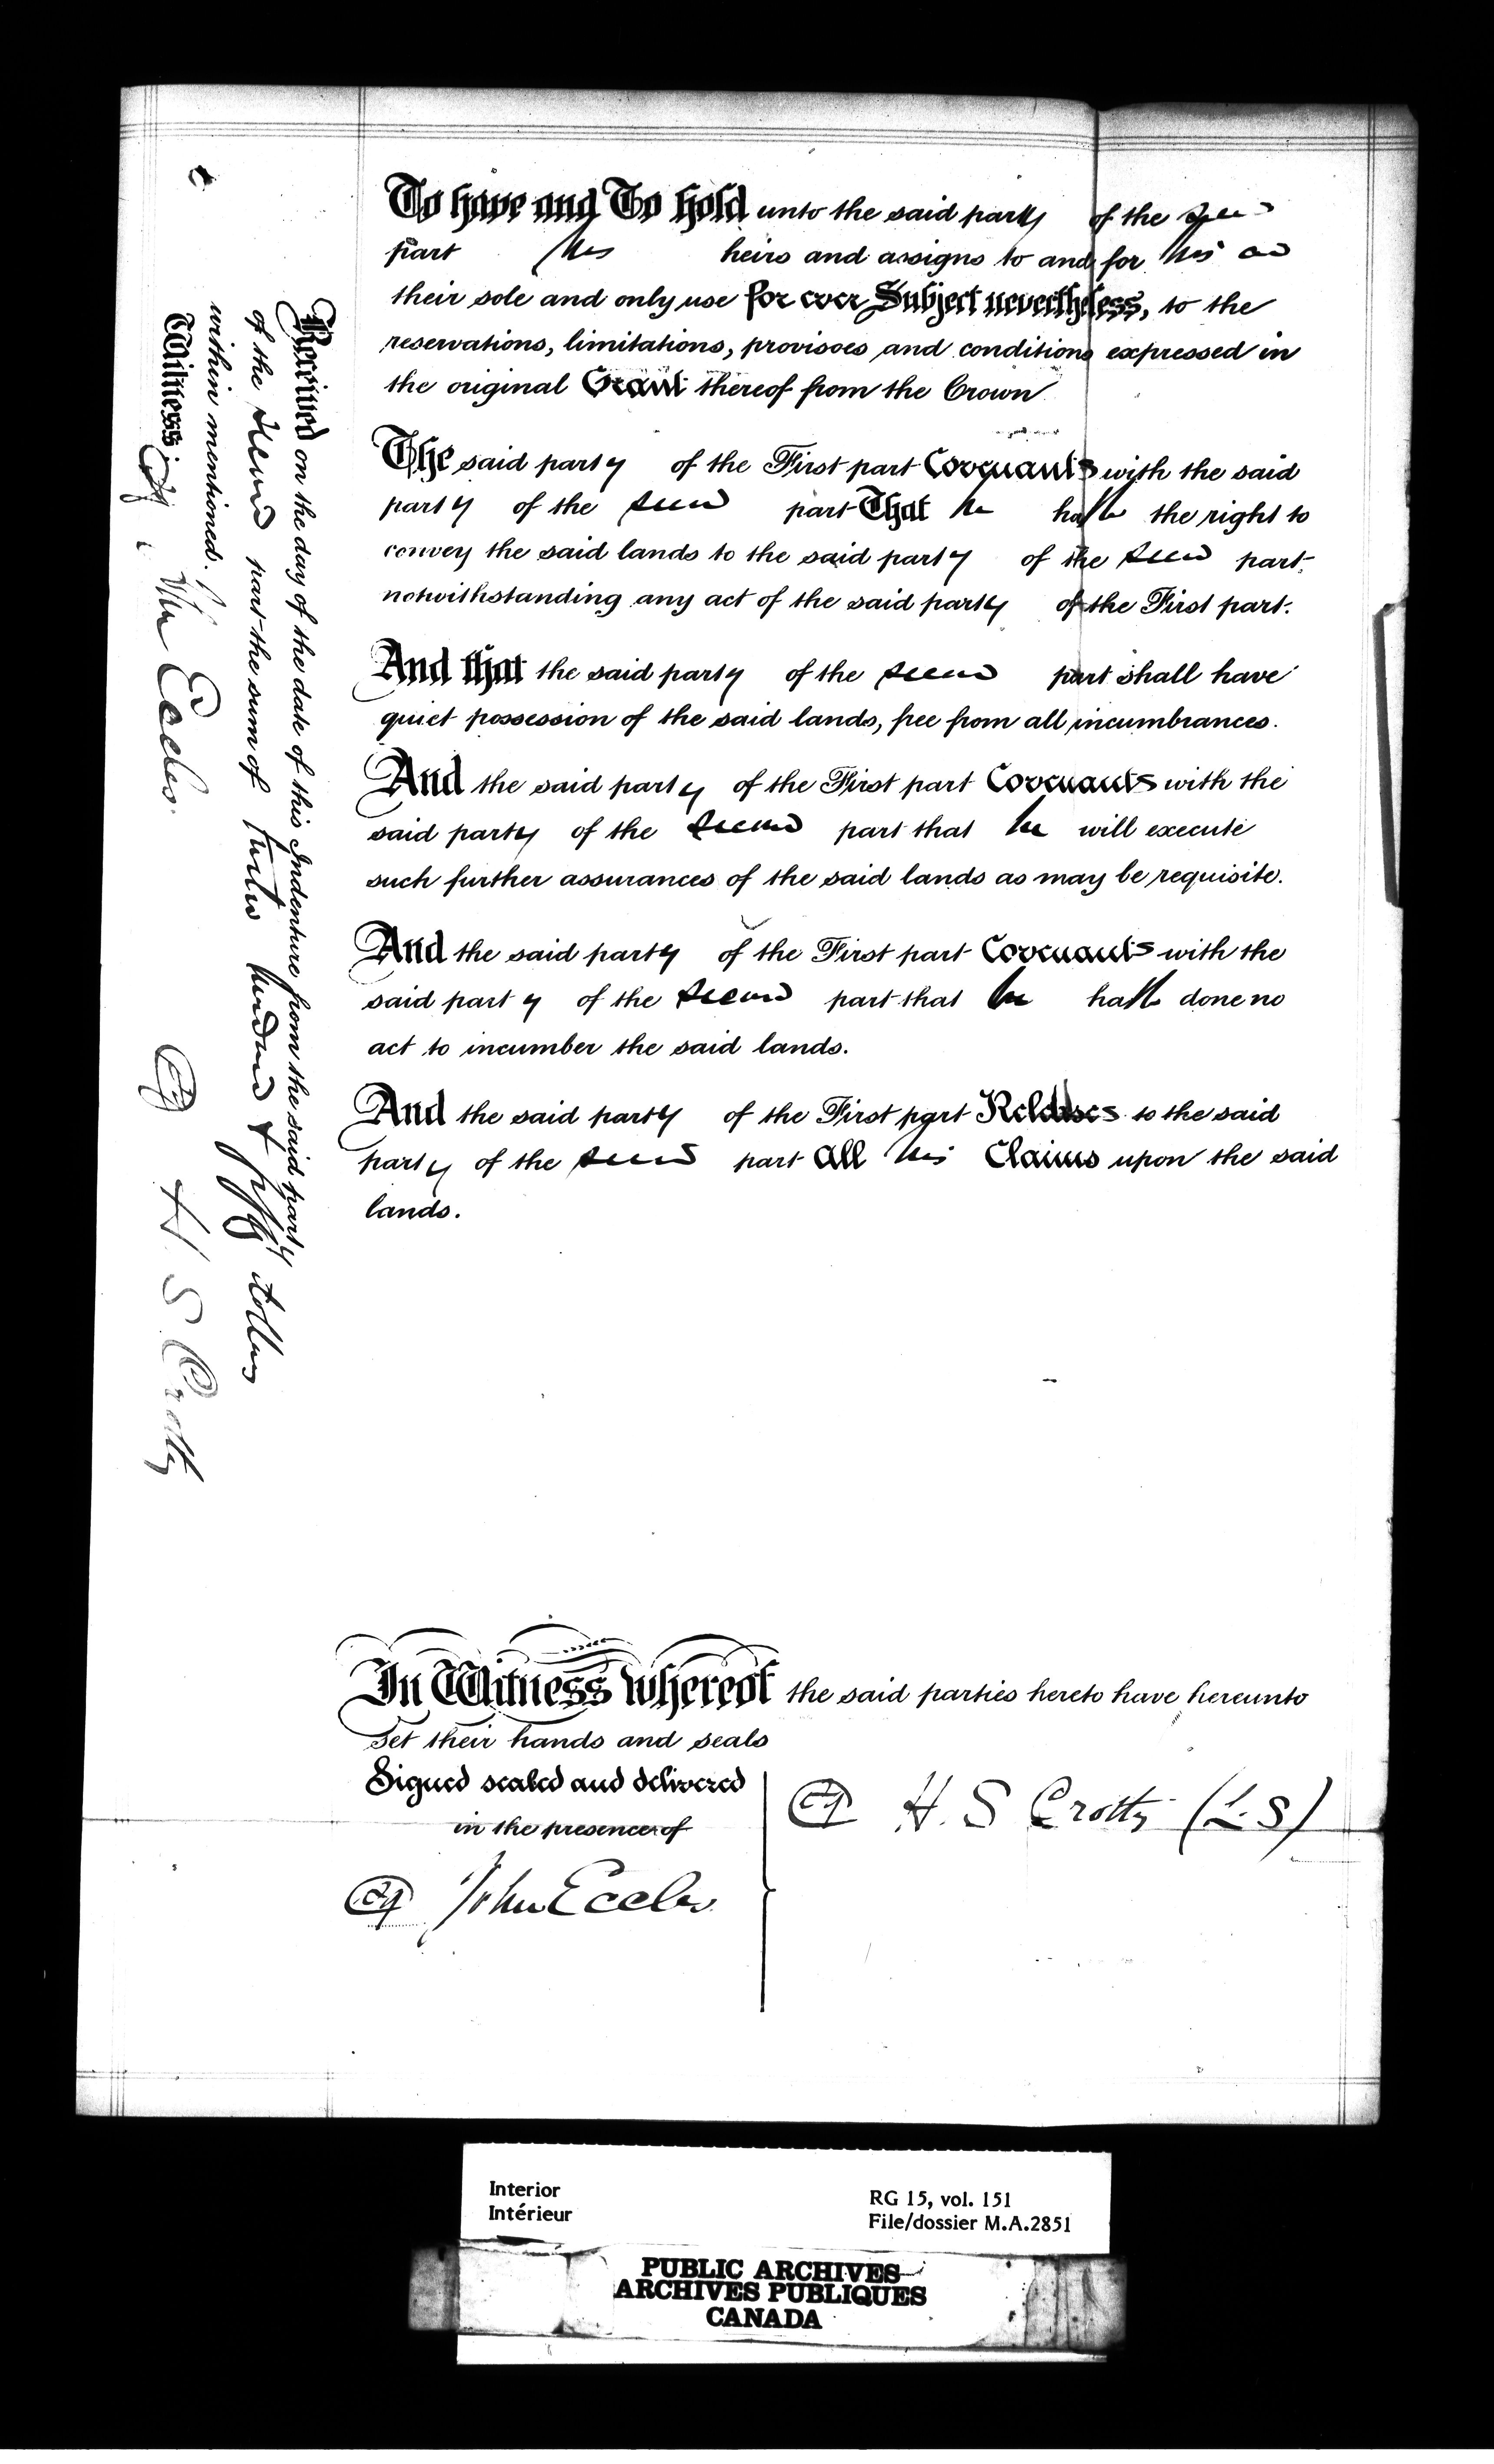 To have and To hold unto the said party of the Second
part his heirs and assigns to and for his and
their sole and only use for ever Subject nevertheless, to the
reservations, limitations, provisoes and conditions expressed in
the original Grant thereof from the Crown
The said party of the First part Covenants with the said
party of the Second part That he hath the right to
convey the said lands to the said party of the Second part
notwithstanding any act of the said party of the First part.
And that the said party of the Second part shall have
quiet possession of the said lands, free from all incumbrances.
And the said party of the First part Covenants with the
said party of the Second part that he will execute
such further assurances of the said lands as may be requisite.
And the said party of the First part Covenants with the
said party of the Second part that he hath done no
act to incumber the said lands.
And the said party of the First part Releases to the said
party of the Second part all his Claims upon the said
lands.
In Witness whereof the said parties hereto have hereunto
set their hands and seals
Signed sealed and delivered
in the presence of
John Eccles
H. S Crotty (L.S)
Received on the day of the date of this Indenture from the said party
of the Second part the sum of hundred & fifty dollars
within mentioned.
Witness. John Eccles. H S Crotty
Interior
Intérieur
RG 15, vol. 151
File/dossier M.A.2851
PUBLIC ARCHIVES
ARCHIVES PUBLIQUES
CANADA